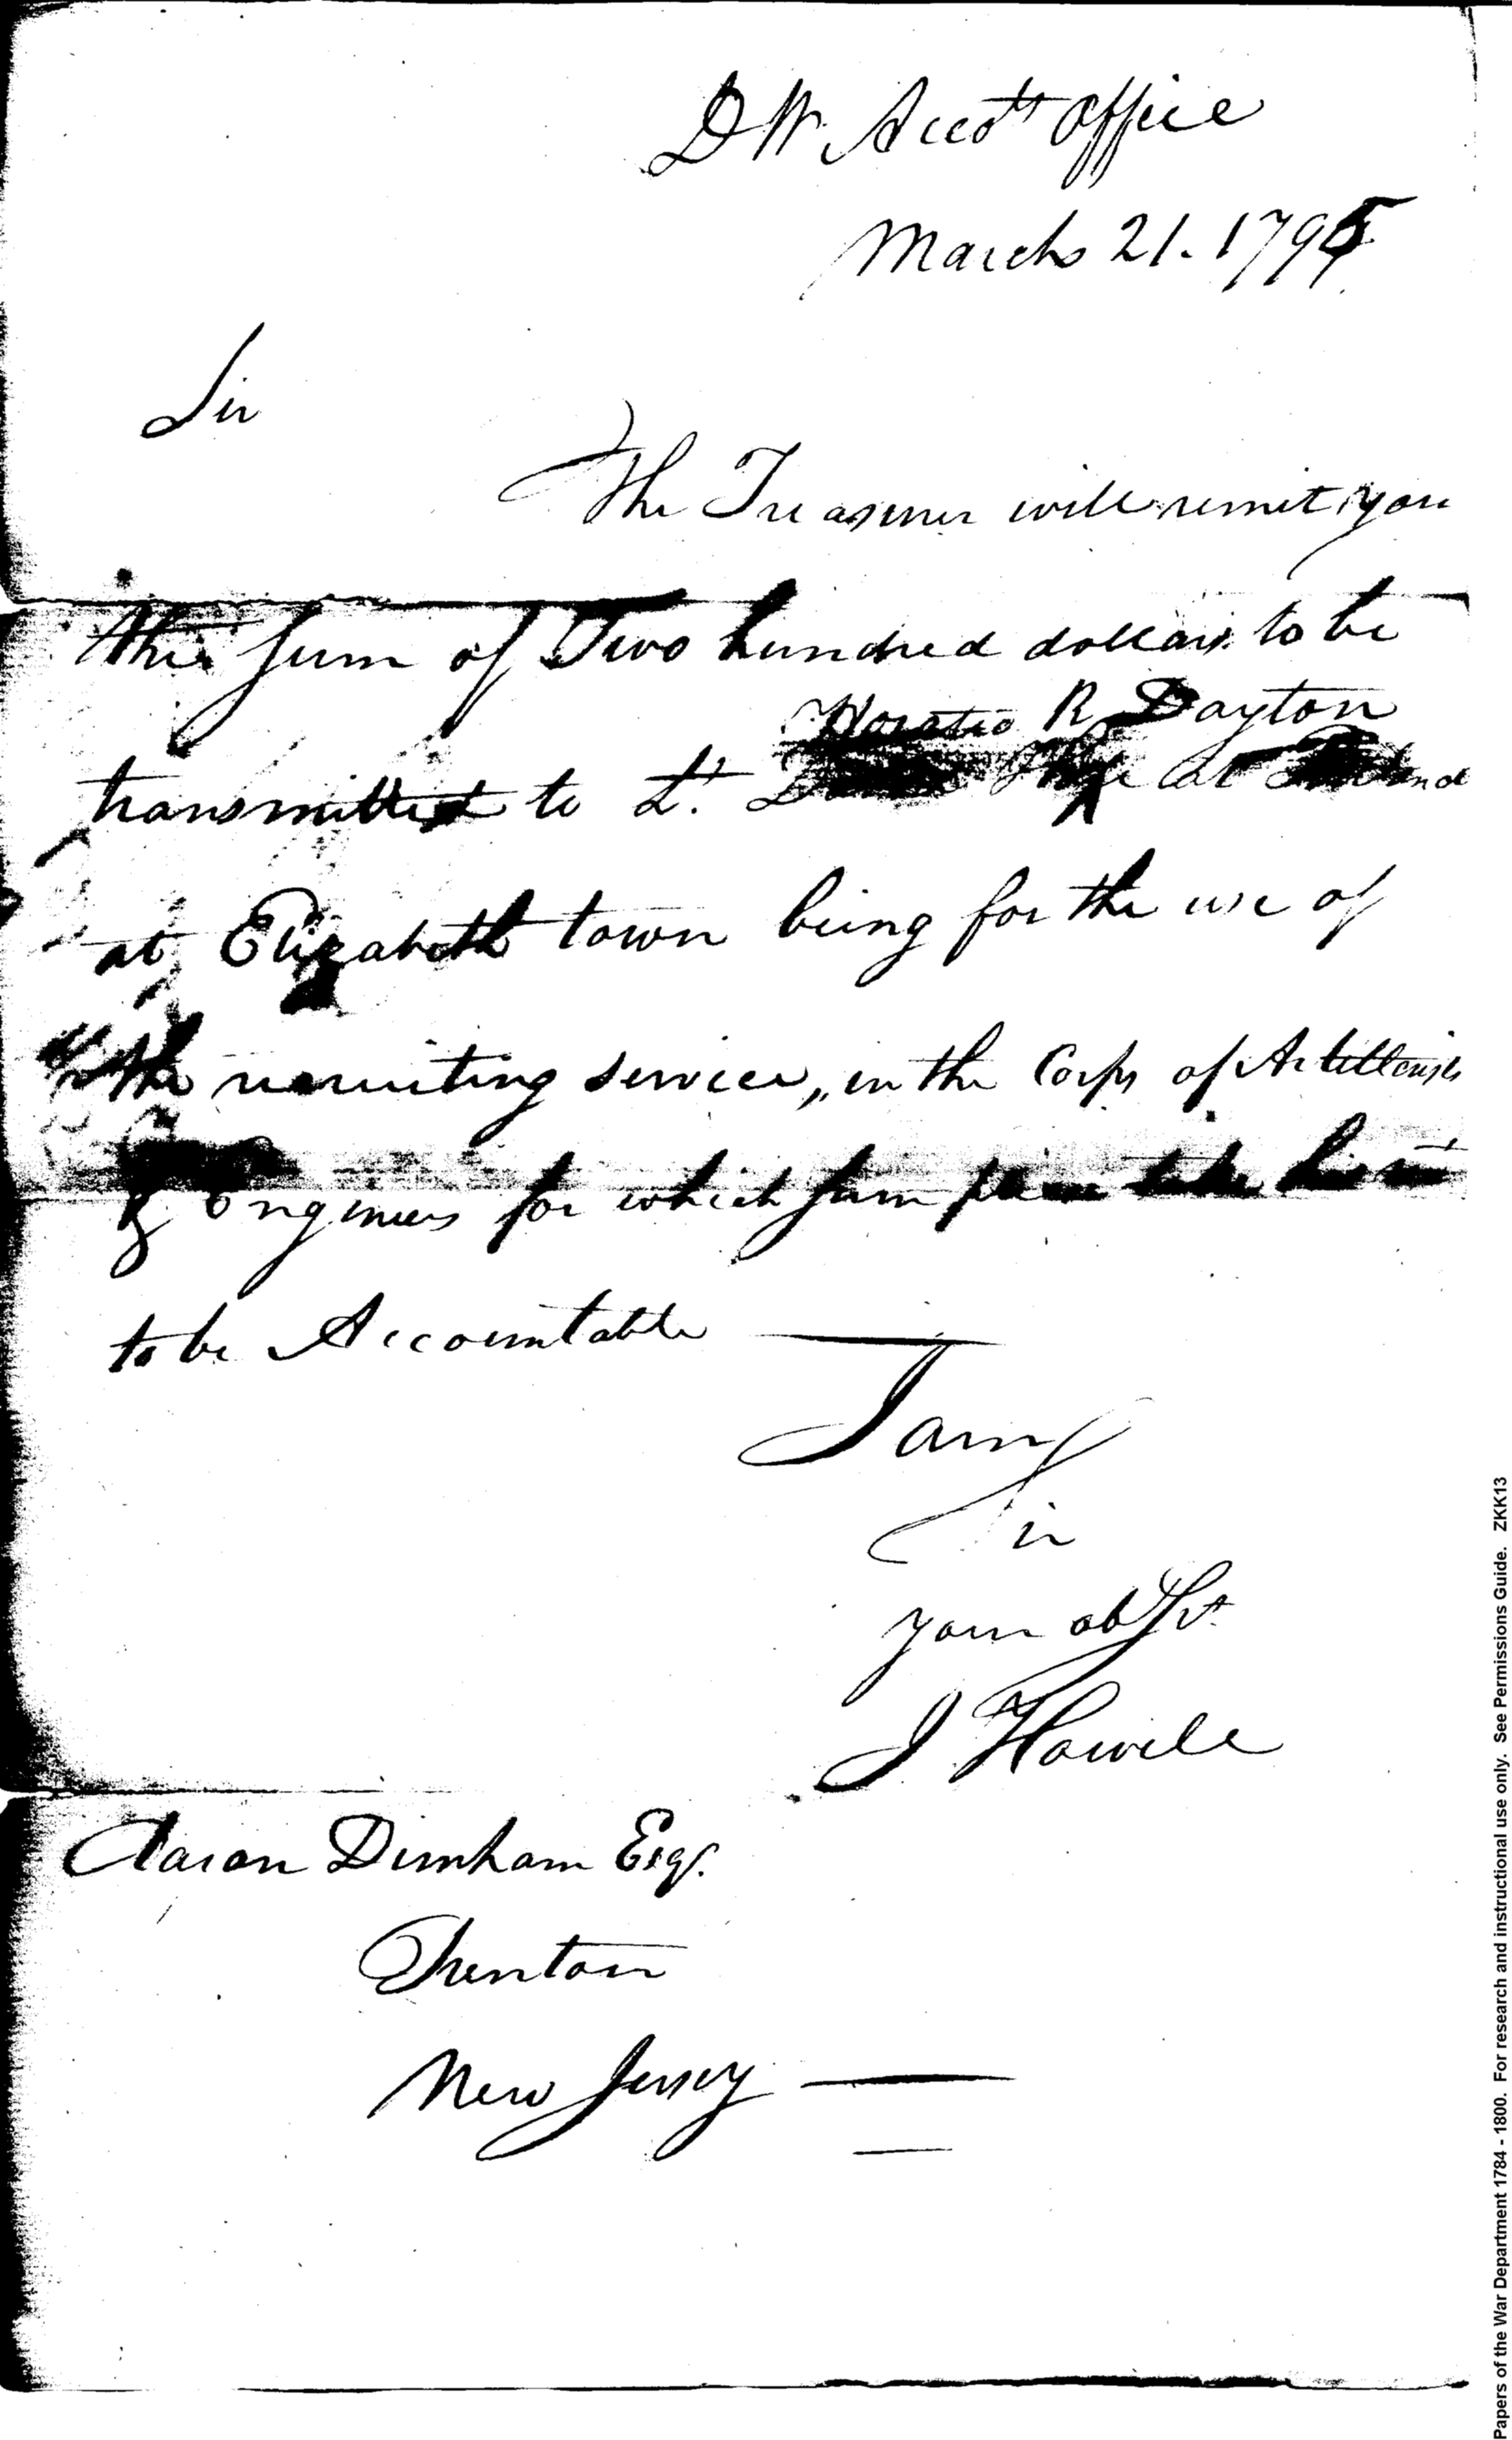 D W. Accots Office
March 21. 1795
Sir
The Treasurer will remit you
the Sum of Two hundred dollars to be
Horatio R Dayton
transmitted to Lt. at
at Elizabeth town being for the use of
the recruiting service, in the Corps of Artillerists
& Engineers for which sum please take his rect
to be Accountable
I am
Sir
your ob Svt
J Howell
Aaron Dunham Esqr.
Trenton
New Jersey
Papers of the War Department 1784 - 1800. For research and instructional use only. See Permissions Guide. ZKK13